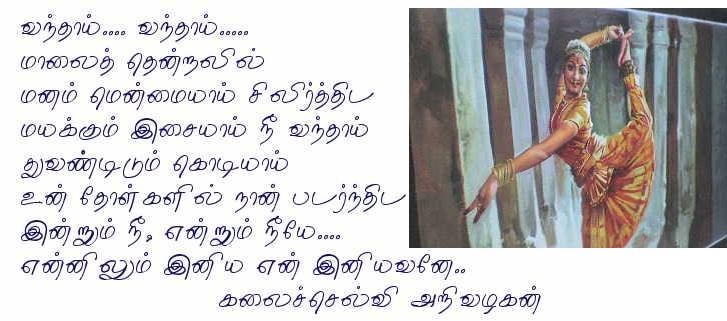 வந்தாய்.... வந்தாய்.....
மாலைத் தென்றலில்
மனம் மென்மையாய் சிலிர்த்திட
மயக்கும் இசையாய் நீ வந்தாய்
துவண்டிடும் கொடியாய்
உன் தோள்களில் நான் படர்ந்திட
இன்றும் நீ, என்றும் நீயே....
என்னிலும் இனிய என் இனியவனே..
கலைச்செல்வி அறிவழகன்